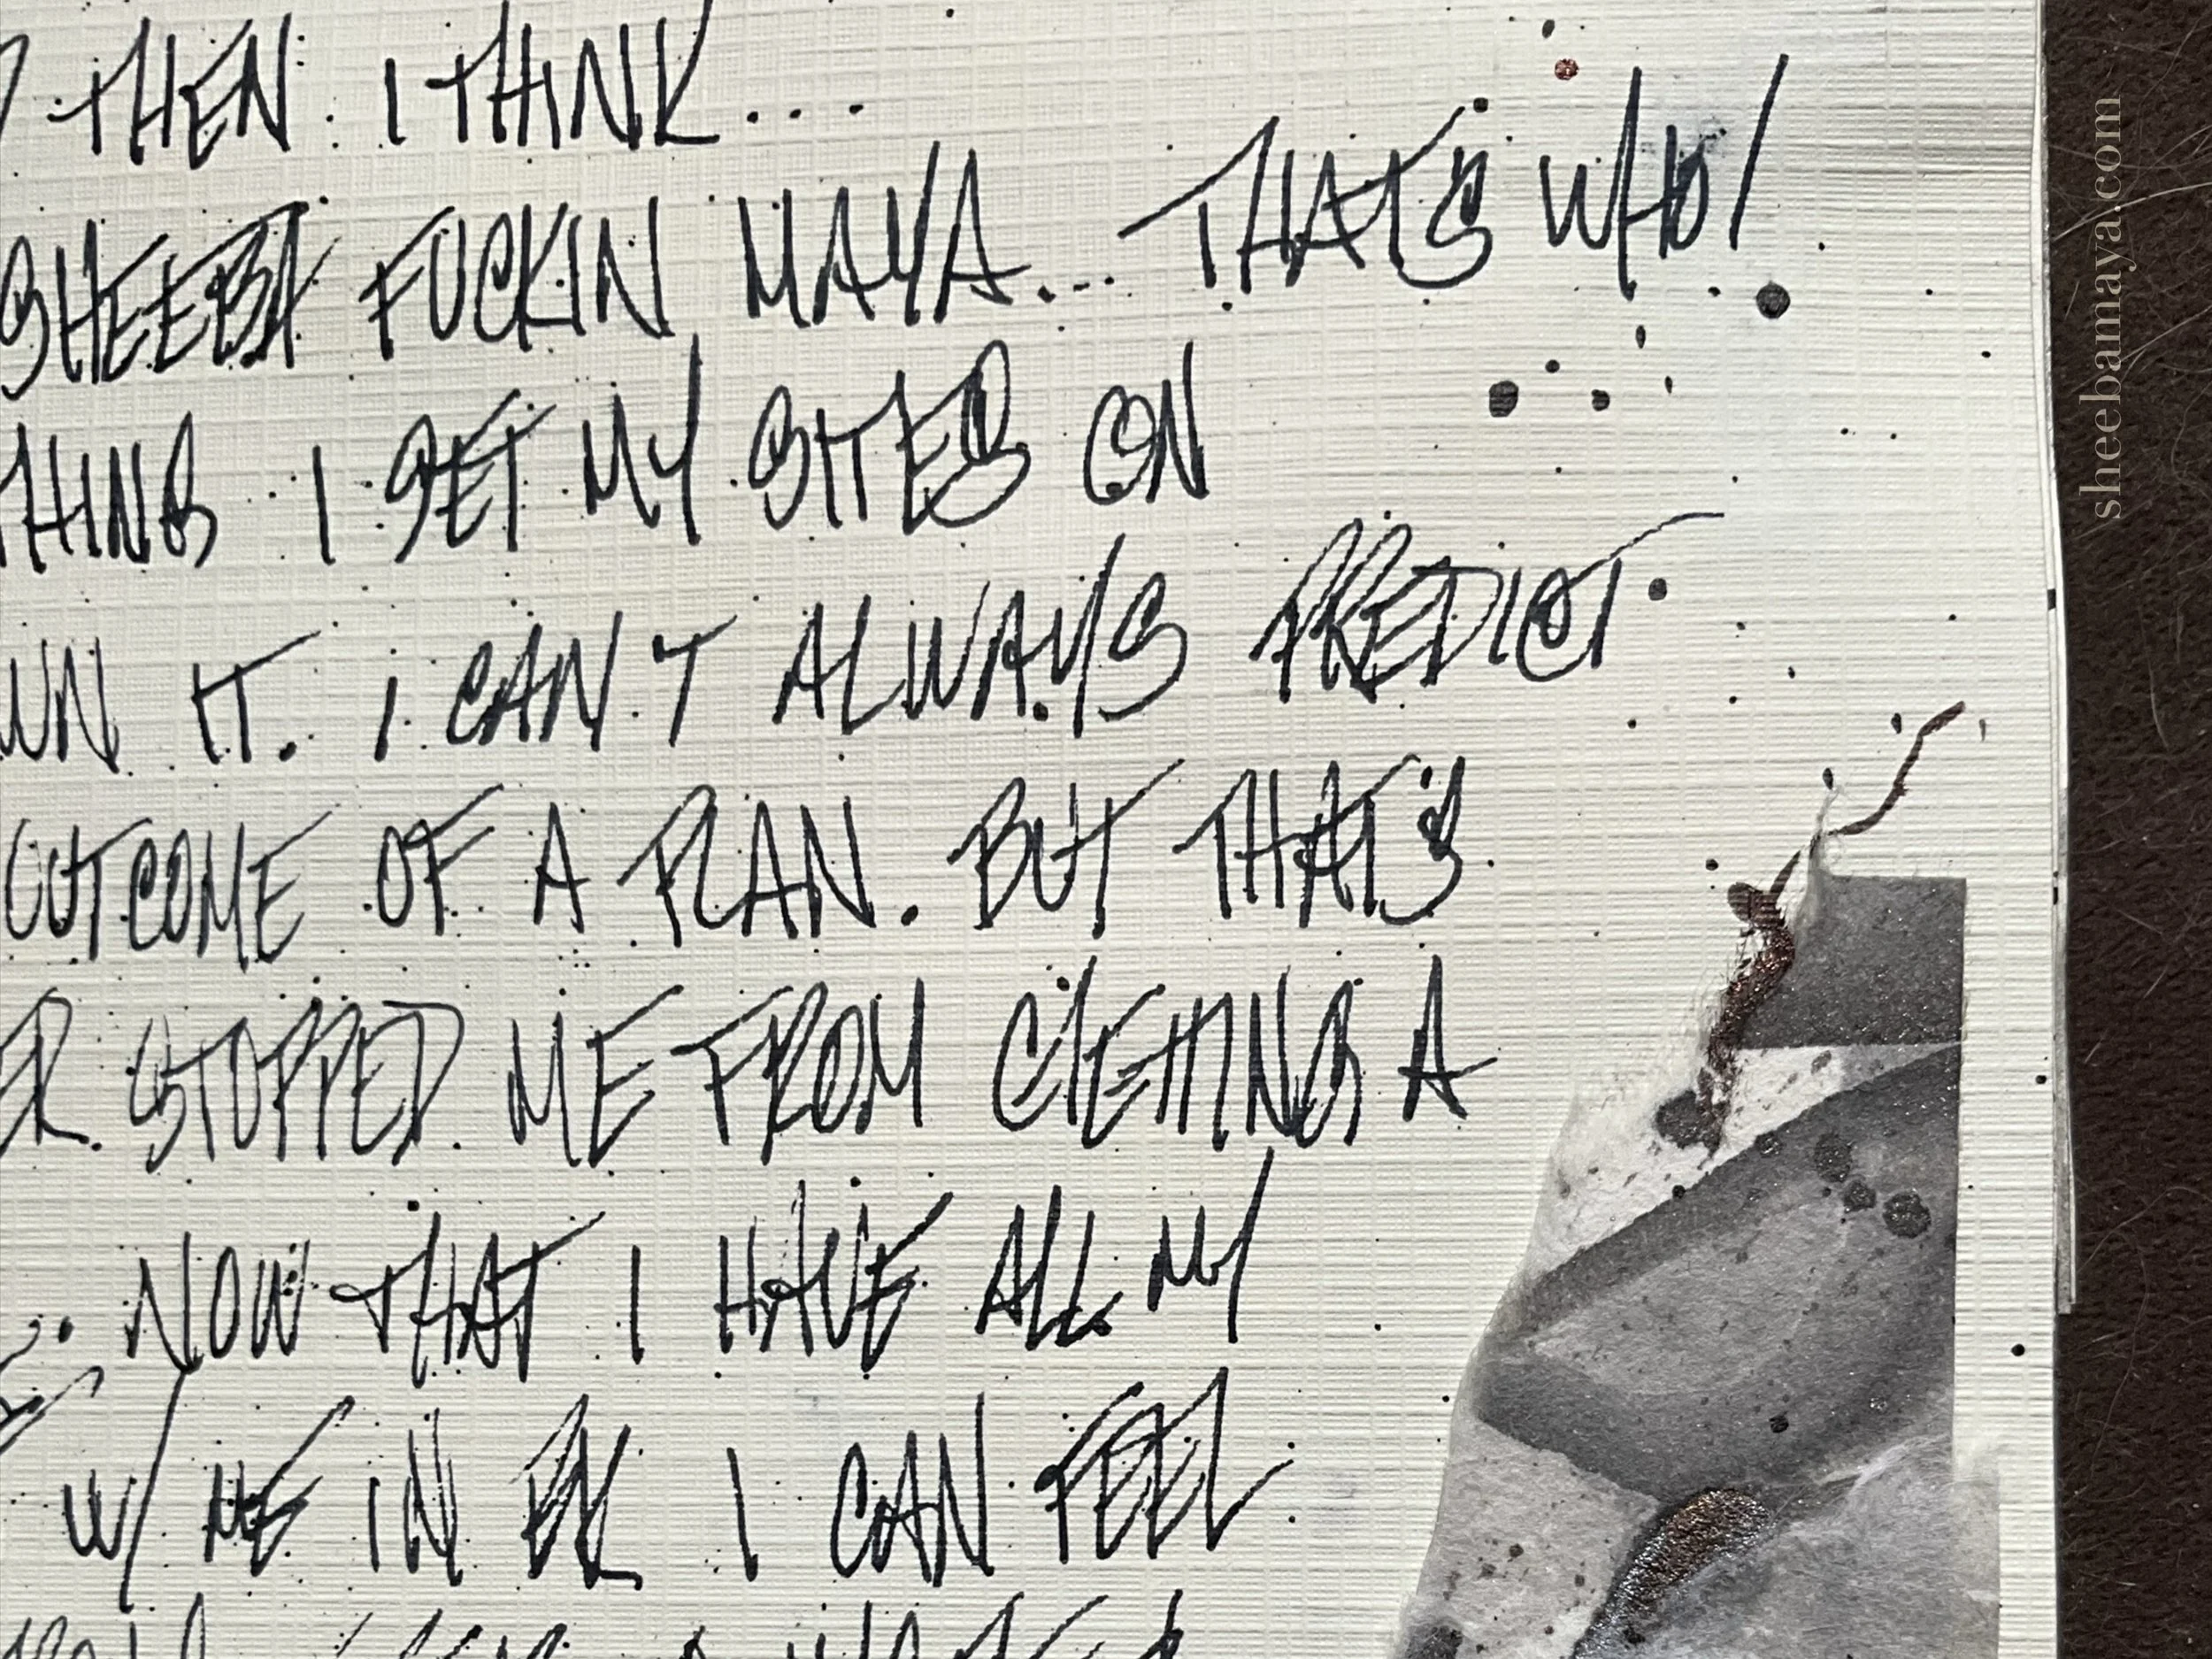 THEN. I THINK...
SHEEBA FUCKIN MAYA... THAT'S WHO!
THING I SET MY SITES ON
WN IT. I CAN'T ALWAYS PREDICT
OUTCOME OF A PLAN. BUT THAT'S
ER STOPPED ME FROM GETTING A
NOW THAT I HAVE ALL MY
W/ ME IN BK I CAN FEEL
sheebamaya.com